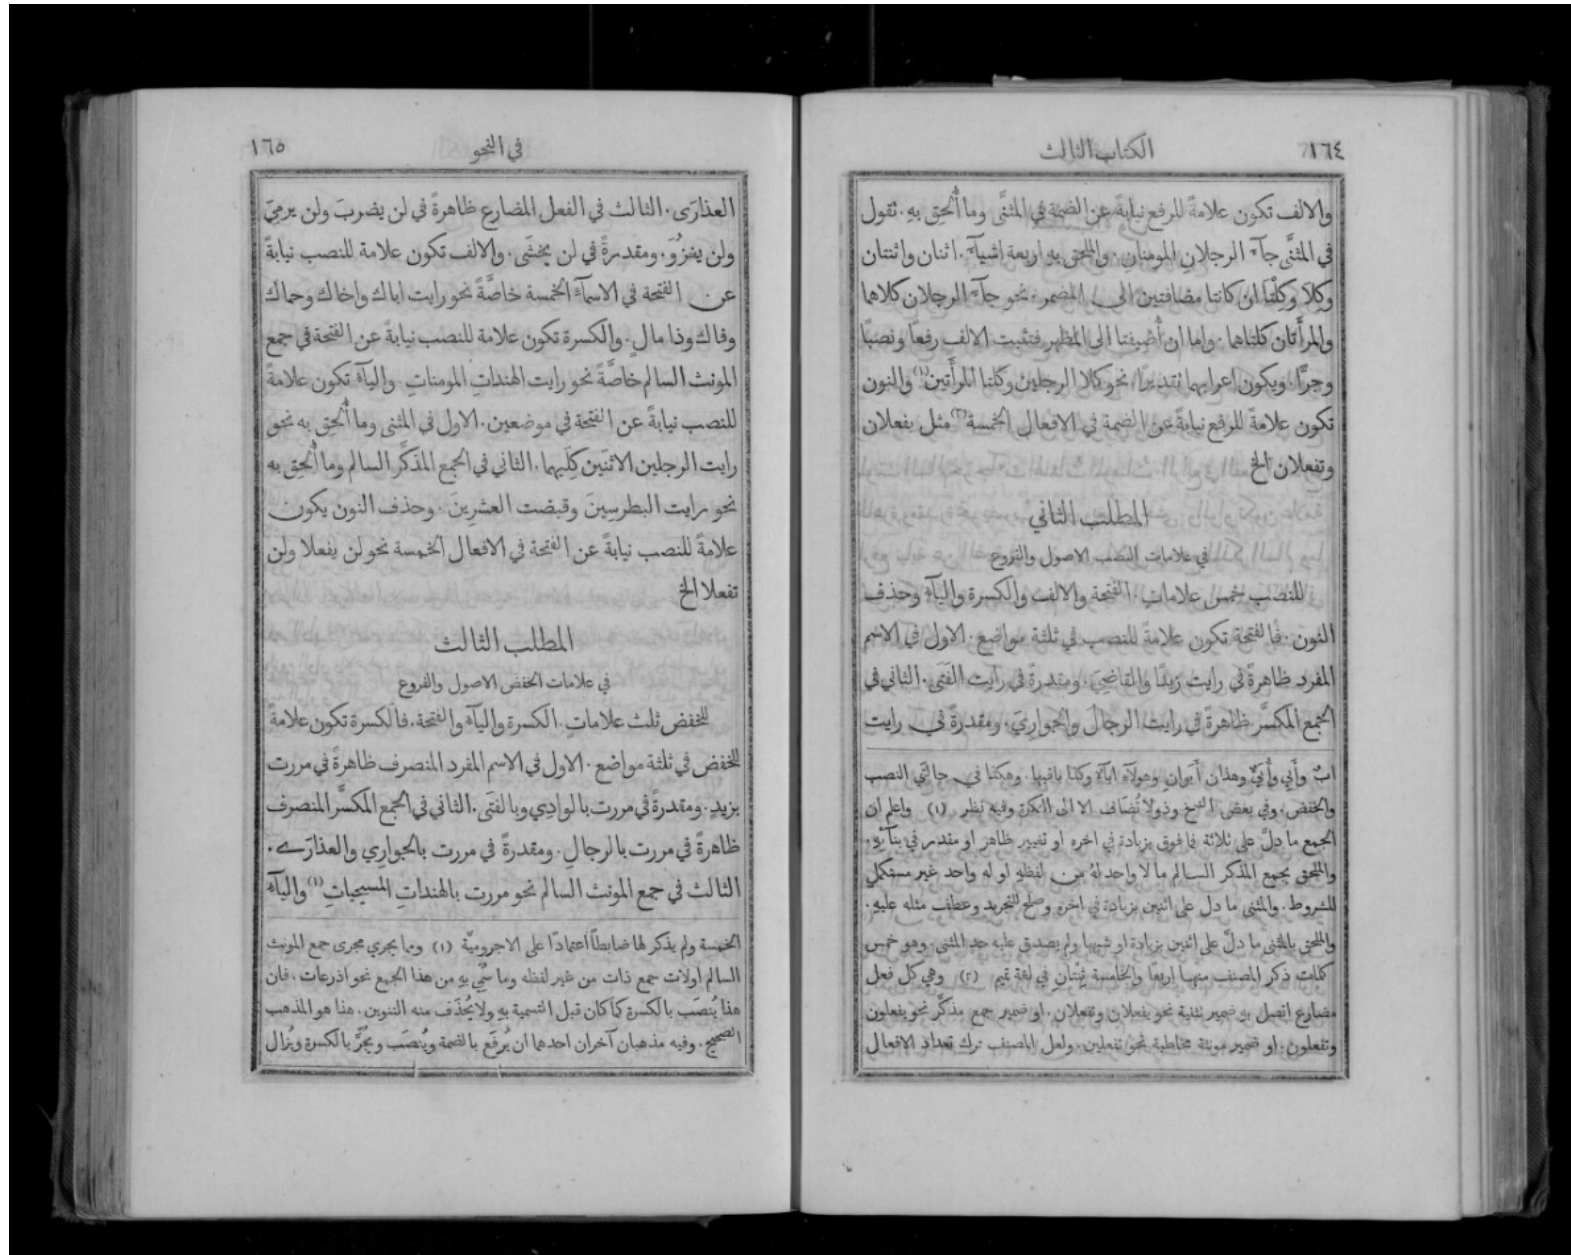 ١٦٤
الكتاب الثالث
والالف تكون علامةً للرفع نيابةً عن الضمة في المثنَّى وما أُلحِق بهِ. نقول
في المثنَّى جآءَ الرجلانِ المومنانِ. والملحق بهِ اربعة اشيآءَ. اثنان واثنتان
وكِلاَ وكِلْتا ان كانتا مضافتين الى المضمر. نحو جآءَ الرجلان كلاهما
والمرأَتان كلتاهما. واما ان أُضيفتا الى المظهر فتثبت الالف رفعًا ونصبًا
وجرًّا. ويكون اعرابهما نقديرًا. نحو كلا الرجلين وكلتا المرأَتين(١) والنون
تكون علامةً للرفع نيابةً عن الضمة في الافعال الخمسة(٢) مثل يفعلان
وتفعلان الخ
المطلب الثاني
في علامات النصب الاصول والفروع
للنصب خمس علاماتٍ. الفتحة والالف والكسرة واليآءُ وحذف
النون. فالفتحة تكون علامةً للنصب في ثلثة مواضع. الاول في الاسم
المفرد ظاهرةً في رايت زيدًا والقاضيَ. ومقدرةً في رايت الفَتَى. الثاني في
الجمع المكسَّر ظاهرةً في رايت الرجالَ والجوارِيَ. ومقدرةً في رايت
ابٌ وأَبي وأُبَيٌّ وهذان أَبَوانِ وهولآءِ ابآءٌ وكذا باقيها. وهكذا في حالتَي النصب
والخفض. وفي بعض النسخ وذو لا تُضَاف الا الى النكرة وفيهِ نظر (١) واعلم ان
الجمع ما دلَّ على ثلاثة فما فوق بزيادة في اخره او تغيير ظاهر او مقدر في بنآئِهِ.
والملحق بجمع المذكر السالم ما لا واحد لهُ من لفظهِ او له واحد غير مستكملٍ
للشروط. والمثنى ما دل على اثنين بزيادة في اخره وصلح للتجريد وعطف مثله عليهِ.
والملحق بالمثنى ما دلَّ على اثنين بزيادة او شبهها ولم يصدق عليه حد المثنى. وهو خمس
كلمات ذكر المصنف منها اربعًا والخامسة ثِنْتان في لغة تميم (٢) وهي كل فعل
مضارع اتصل به ضمير تثنية نحو يفعلان وتفعلان. او ضمير جمع مذكَّر نحو يفعلون
وتفعلون. او ضمير مونثة مخاطبة نحو تفعلين. ولعل المصنف ترك تعداد الافعال
في النحو
١٦٥
العذارَى. الثالث في الفعل المضارع ظاهرةً في لن يضربَ ولن يرميَ
ولن يغزُوَ. ومقدرةً في لن يخشَى. والالف تكون علامة للنصب نيابةً
عن الفتحة في الاسمآءِ الخمسة خاصَّةً نحو رايت اباك واخاك وحماك
وفاك وذا مالٍ. والكسرة تكون علامة للنصب نيابةً عن الفتحة في جمع
المونث السالم خاصَّةً نحو رايت الهنداتِ المومناتِ. واليآءُ تكون علامةً
للنصب نيابةً عن الفتحة في موضعين. الاول في المثنى وما أُلحِق به نحو
رايت الرجلين الاثنَين كلَيهما. الثاني في الجمع المذكَّر السالم وما أُلحِق به
نحو رايت البطرسِينَ وقبضت العشرِينَ. وحذف النون يكون
علامةً للنصب نيابةً عن الفتحة في الافعال الخمسة نحو لن يفعلا ولن
تفعلا الخ
المطلب الثالث
في علامات الخفض الاصول والفروع
للخفض ثلث علاماتٍ. الكسرة واليآءُ والفتحة. فالكسرة تكون علامةً
للخفض في ثلثة مواضع. الاول في الاسم المفرد المنصرف ظاهرةً في مررت
بزيدٍ. ومقدرةً في مررت بالوادِي وبالفتَى. الثاني في الجمع المكسَّر المنصرف
ظاهرةً في مررت بالرجالِ. ومقدرةً في مررت بالجوارِي والعذارَے.
الثالث في جمع المونث السالم نحو مررت بالهنداتِ المسيحياتِ(١) واليآءُ
الخمسة ولم يذكر لها ضابطاً اعتمادًا على الاجروميَّة (١) ومما يجري مجرى جمع المونث
السالم اولات جمع ذات من غير لفظه وما سُمِّي بهِ من هذا الجمع نحو اذرعات. فان
هذا يُنصَب بالكسرة كما كان قبل التسمية بهِ ولا يُحذَف منه التنوين. هذا هو المذهب
الصحيح. وفيه مذهبان آخران احدهما ان يُرفَع بالضمة ويُنصَب ويُجَرَّ بالكسرة ويُزال